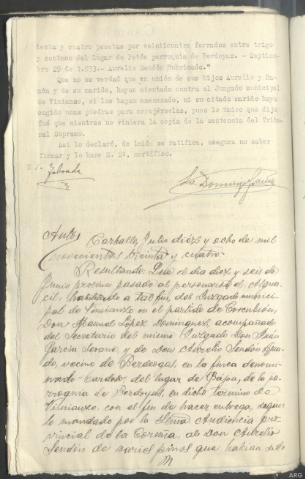 tenta y cuatro pesetas por veinticuatro ferrados entre trigo
y centeno del lugar de Patón parroquia de Berdoyas.- Septiem-
bre 29 de 1.933.- Aurelio Sendón Rubricado."
Que no es verdad que en unión de sus hijos Aurelio y Ra-
món y de su marido, hayan atentado contra el Juzgado municipal
de Vimianzo, ni les hayan amenazado, ni su citado marido haya
cogido unas piedras para arrojárselas, pues lo único que dijo
fué que mientras no viniera la copia de la sentencia del Tribu-
nal Supremo.
Así lo declaró, de leído se ratifica, asegura no saber
firmar y lo hace S. Sª. certifico.
Taboada
Ldo. Domingo
Auto Carballo, Julio diez y ocho de mil
novecientos treinta y cuatro.
Resultando: Que el dia diez y seis de
Junio proximo pasado al personarse el algua-
cil habilitado a tal fin del Juzgado munici-
pal de Vimianzo en el partido de Corcubión,
Don Manuel López Dominguez, acompañado
del Secretario del mismo Juzgado Don
García Lozano y de don Aurelio Sendón
de, vecino de Berdoyas, en la finca denomi-
nada del lugar de de la pa-
rroquia de Berdoyas, en dicho término de
Vimianzo, con el fin de hacer entrega, según
lo mandado por la Ilma Audiencia pro-
vincial de la Coruña, a don Aurelio
Sendón de que habían sido
ARG